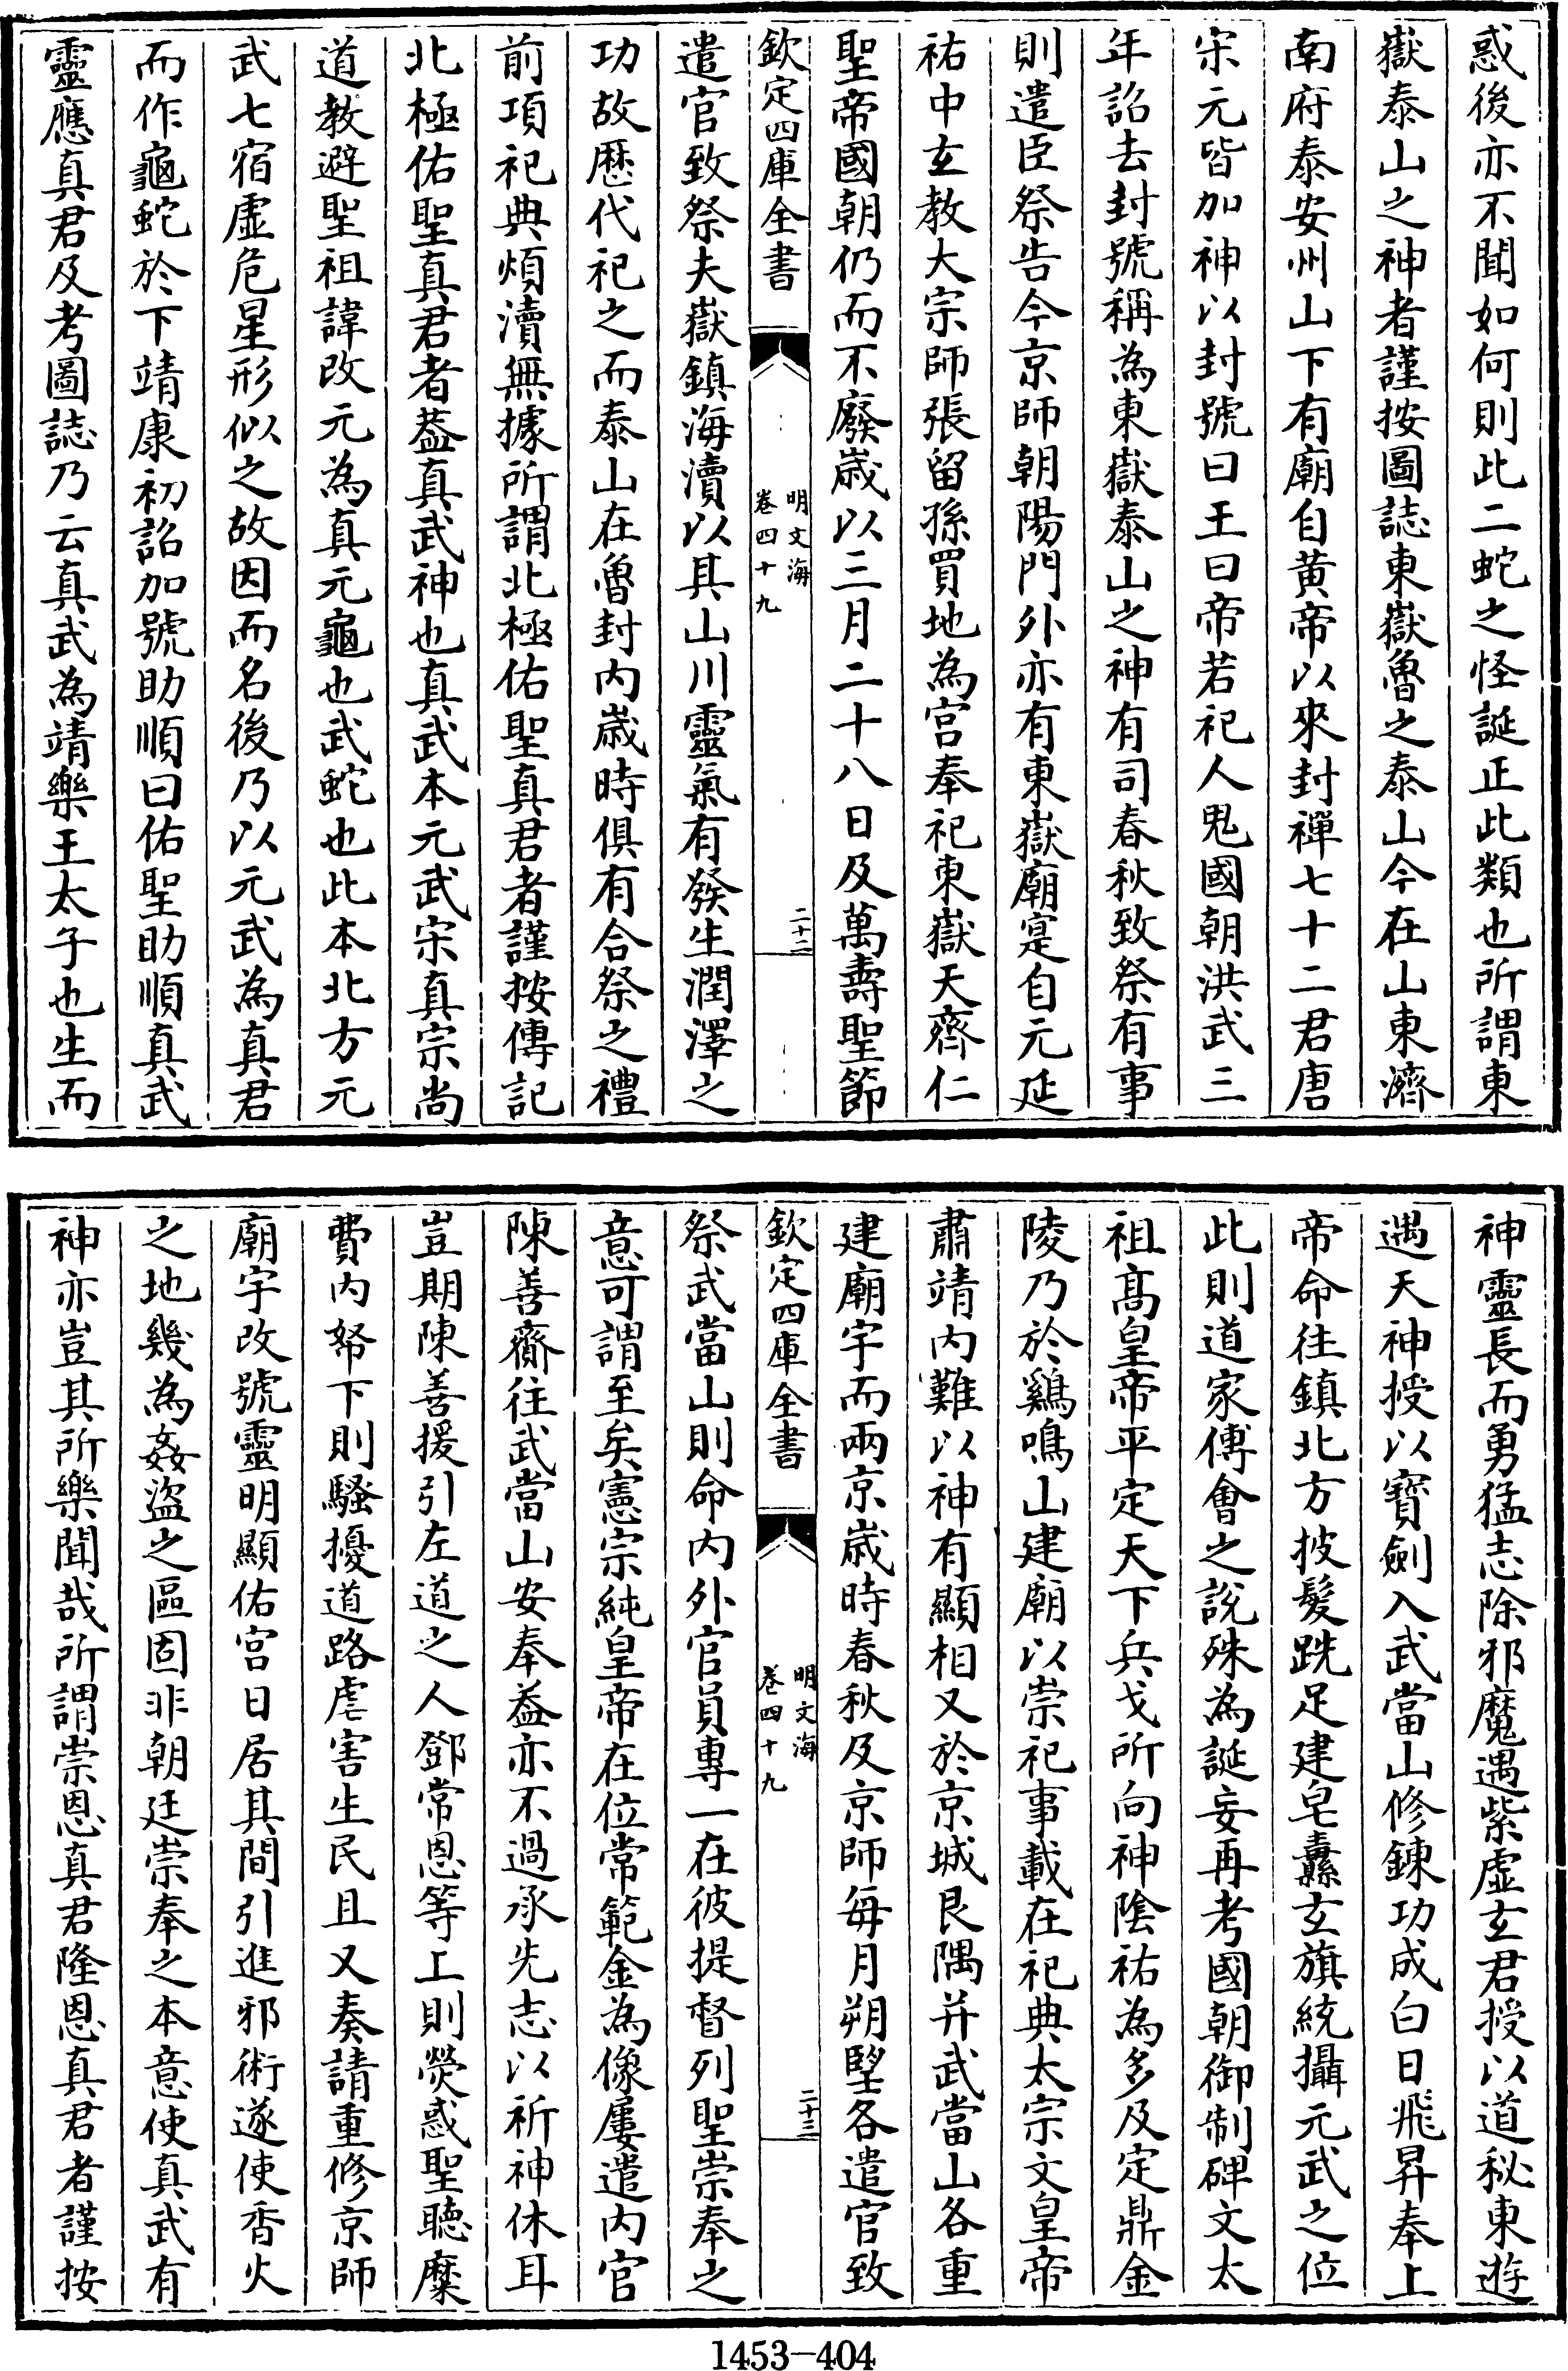 惑後亦不聞如何則此二蛇之怪誕正此類也所謂東
嶽泰山之神者謹按圖誌東嶽魯之泰山今在山東濟
南府泰安州山下有廟自黄帝以來封禪七十二君唐
宋元皆加神以封號曰王曰帝若祀人鬼國朝洪武三
年詔去封號稱為東嶽泰山之神有司春秋致祭有事
則遣臣祭告今京師朝陽門外亦有東嶽廟寔自元延
祐中玄教大宗師張留孫買地為宫奉祀東嶽天齊仁
聖帝國朝仍而不廢歲以三月二十八日及萬壽聖節
欽定四庫全書
明文海
卷四十九
二十二
遣官致祭夫嶽鎮海瀆以其山川靈氣有發生潤澤之
功故歴代祀之而泰山在魯封内歲時俱有合祭之禮
前項祀典煩瀆無據所謂北極佑聖真君者謹按傳記
北極佑聖真君者葢真武神也真武本元武宋真宗尚
道教避聖祖諱改元為真元龜也武蛇也此本北方元
武七宿虚危星形似之故因而名後乃以元武為真君
而作龜蛇於下靖康初詔加號助順曰佑聖助順真武
靈應真君及考圖誌乃云真武為靖樂王太子也生而
神靈長而勇猛志除邪魔遇紫虚玄君授以道秘東遊
遇天神授以寶劍入武當山修鍊功成白日飛昇奉上
帝命往鎮北方披髮跣足建皂纛玄旗統攝元武之位
此則道家傅會之說殊為誕妄再考國朝御制碑文太
祖髙皇帝平定天下兵戈所向神陰祐為多及定鼎金
陵乃於鷄鳴山建廟以崇祀事載在祀典太宗文皇帝
肅靖内難以神有顯相又於京城艮隅并武當山各重
建廟宇而兩京歲時春秋及京師每月朔望各遣官致
欽定四庫全書
明文海
卷四十九
二十三
祭武當山則命内外官員專一在彼提督列聖崇奉之
意可謂至矣憲宗純皇帝在位常範金為像屢遣内官
陳善齎往武當山安奉葢亦不過承先志以祈神休耳
豈期陳善援引左道之人鄧常恩等上則熒惑聖聽糜
費内帑下則騷擾道路虐害生民且又奏請重修京師
廟宇改號靈明顯佑宫日居其間引進邪術遂使香火
之地幾為姦盗之區固非朝廷崇奉之本意使真武有
神亦豈其所樂聞哉所謂崇恩真君隆恩真君者謹按
1453-404